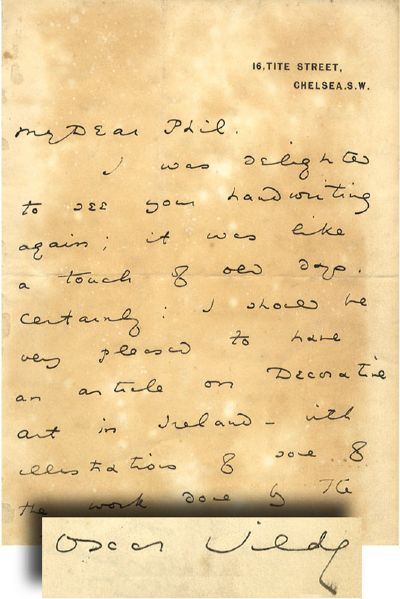 16, TITE STREET,
CHELSEA. S.W.
My Dear Phil.
I was delighted
to see your handwriting
again; it was like
a touch of old days.
Certainly: I should be
very pleased to have
an article on Decorative
art in Ireland - with
illustrations of some of
the work done by the
Oscar Wilde